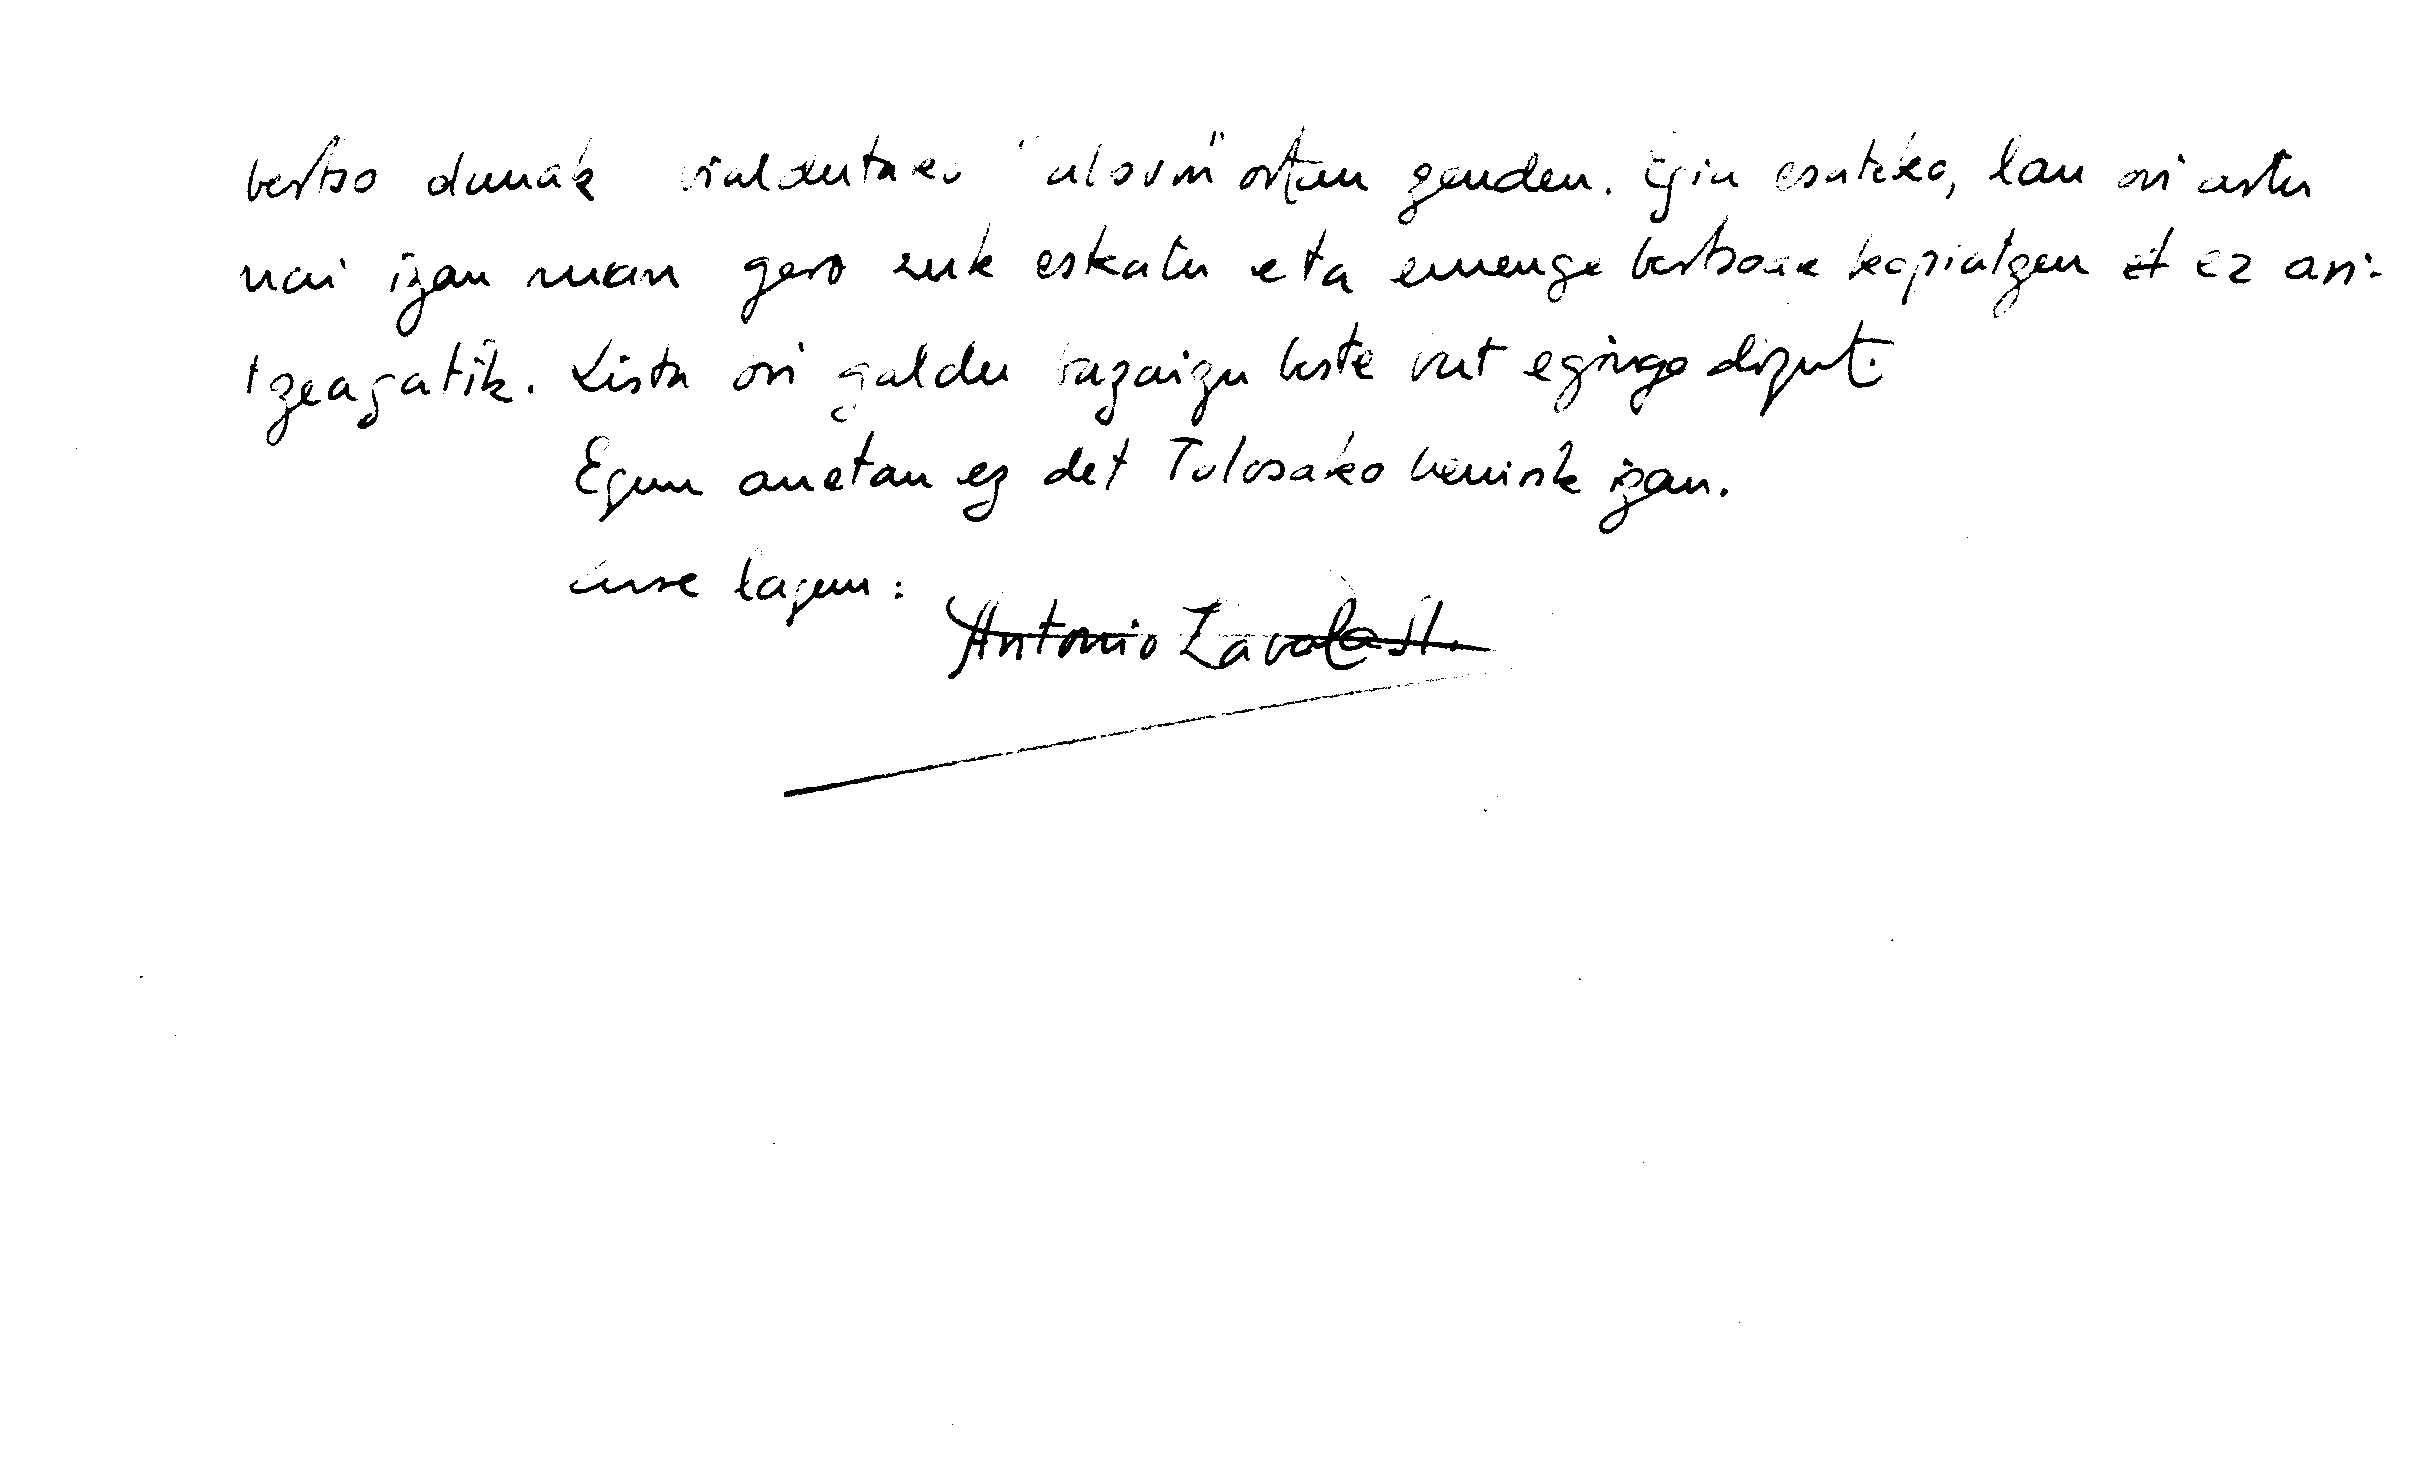 bertso danak vialdutako "alovin" ortan geuden. Egia esateko, lan ori artu
nai izan nuan gero zuk eskatu eta emenge bertsoak kopiatzen et ez ari-
tzeagatik. Lista ori galdu bazaizu beste bat egingo dizut.
Egun auetan ez det Tolosako berririk izan.
lagun:
Antonio Zavala S.I.